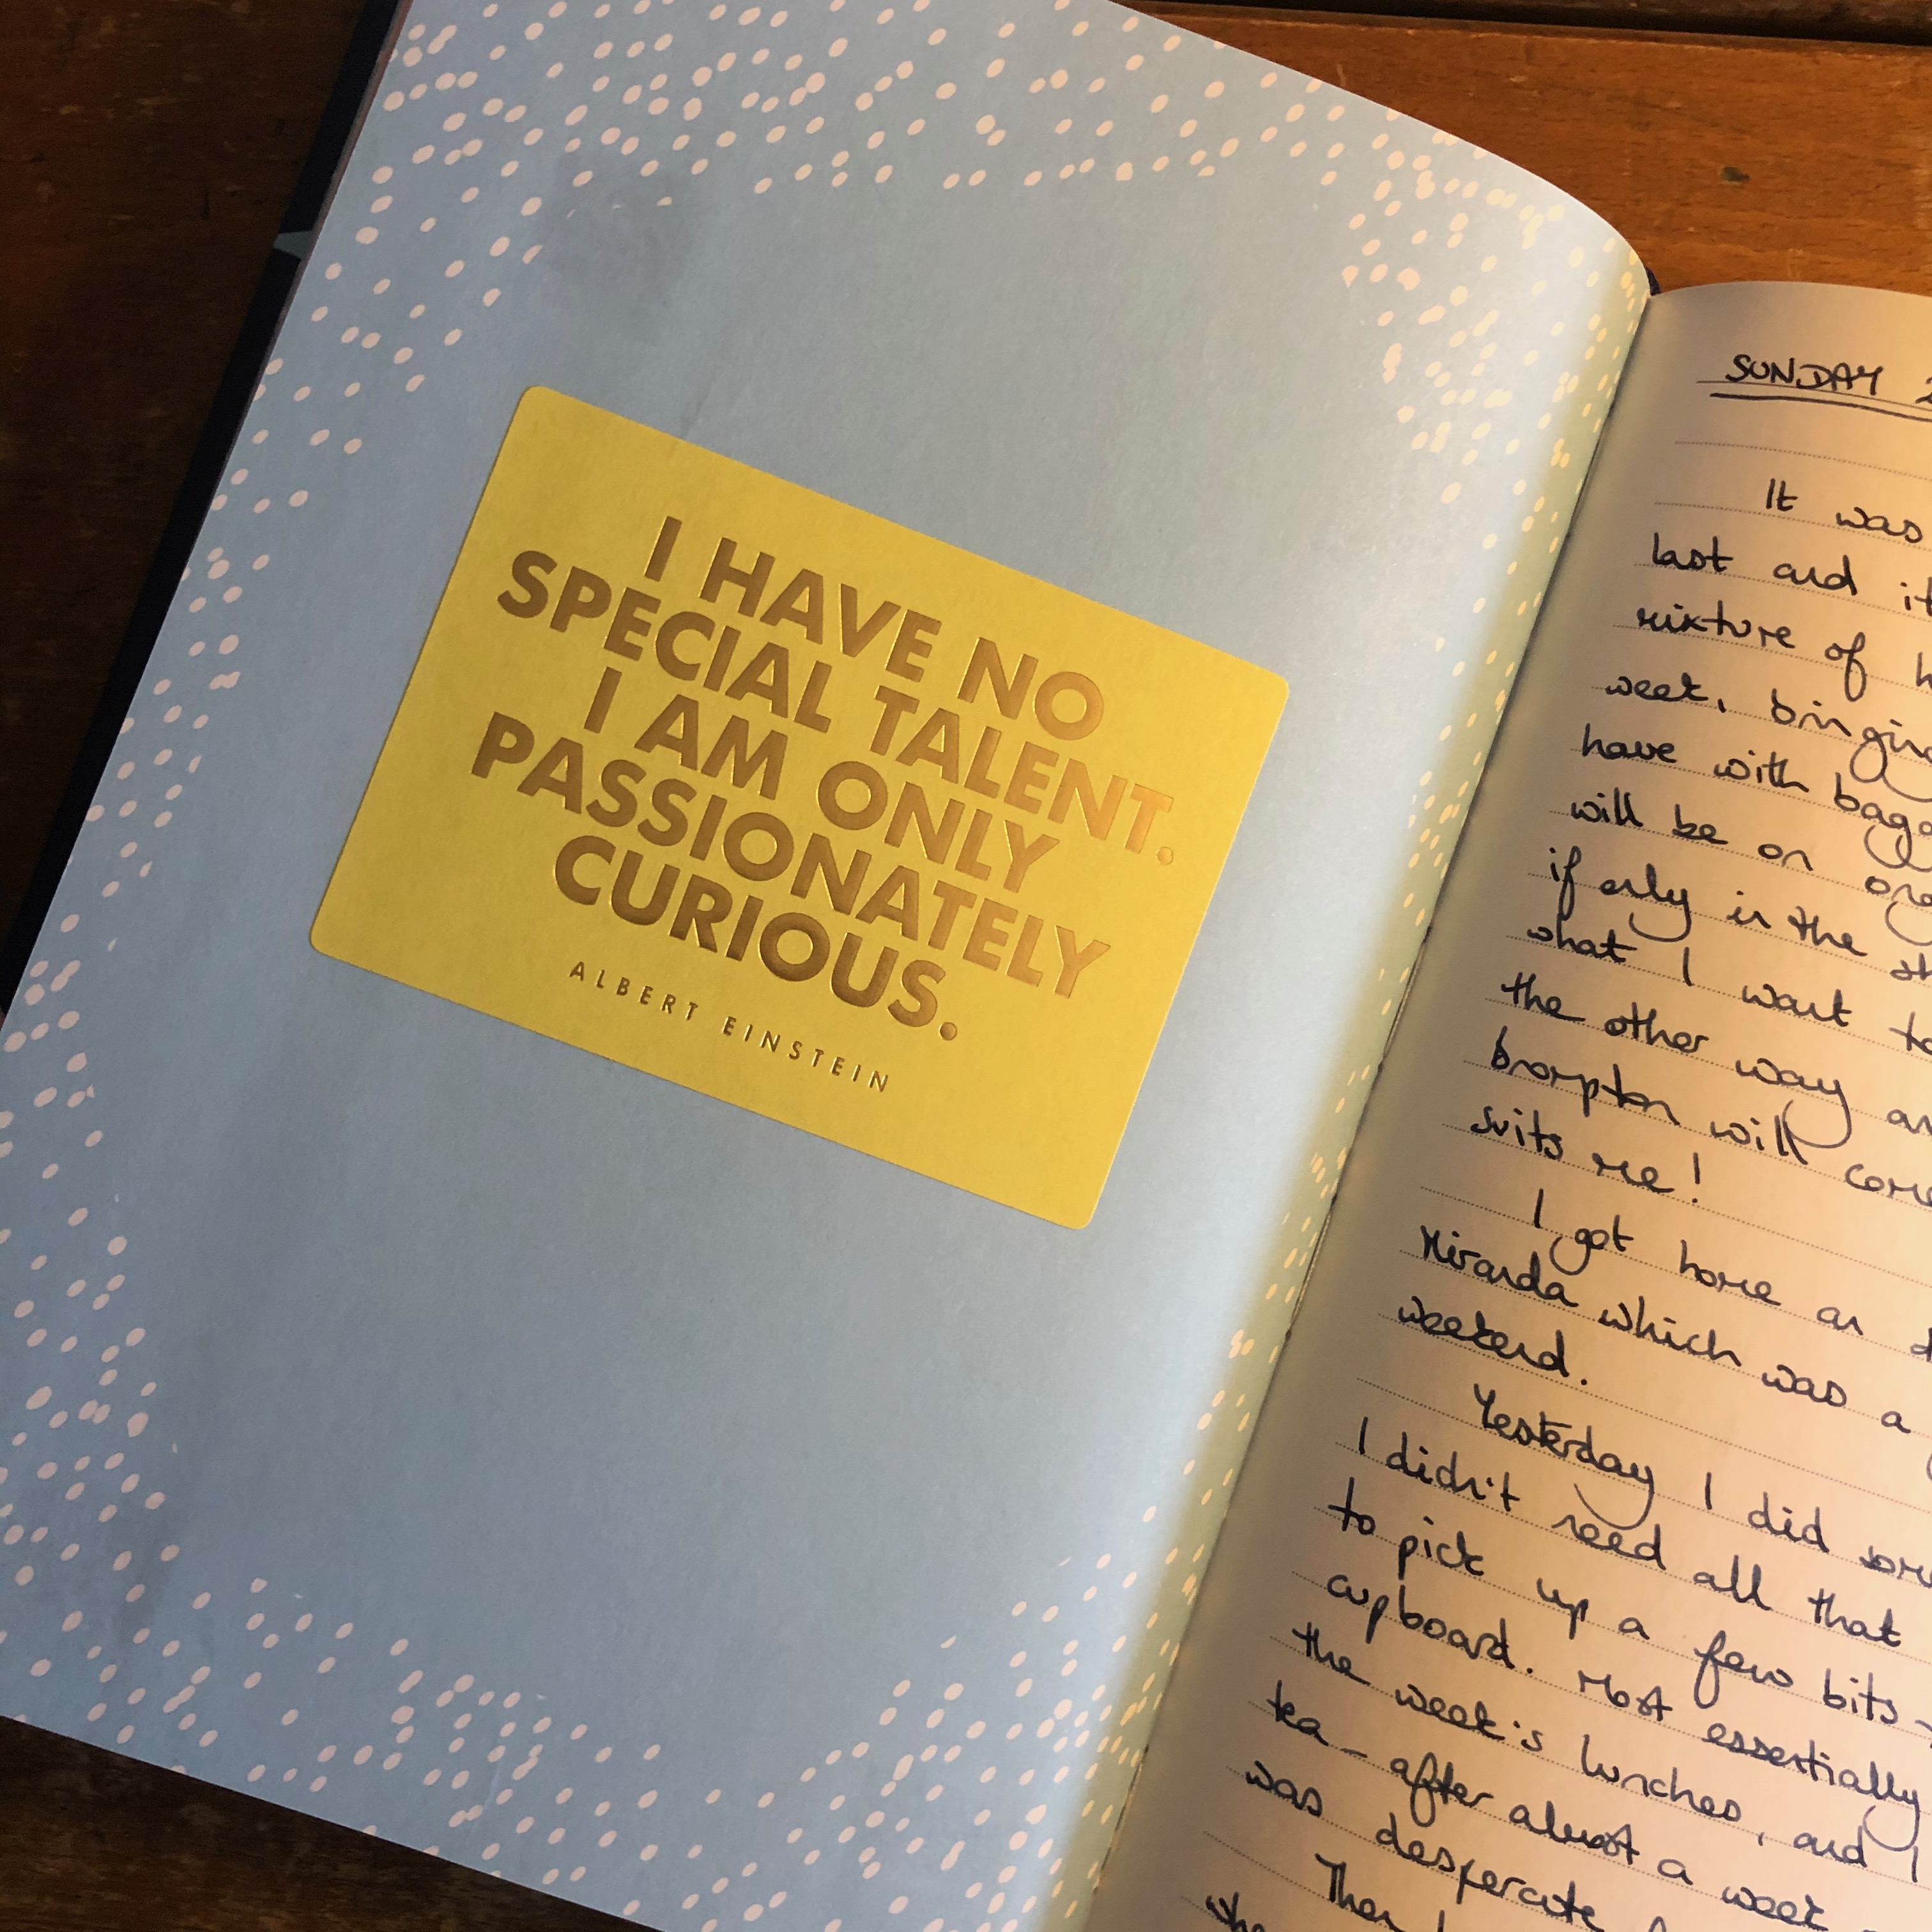 I HAVE NO
SPECIAL TALENT.
I AM ONLY
PASSIONATELY
CURIOUS.
ALBERT EINSTEIN
SUNDAY 2
It was
last and it
mixture of h
week, bringing
have with bagg
will be on
if only in the
what I want to
the other way an
brompton will come
suits me!
I got home on
Miranda which was a
weekend.
Yesterday I did
I didn't need all that
to pick up a few bits -
cupboard. Most essentially
the week's lunches, and I
tea - after almost a week
was desperate
Then I
whe